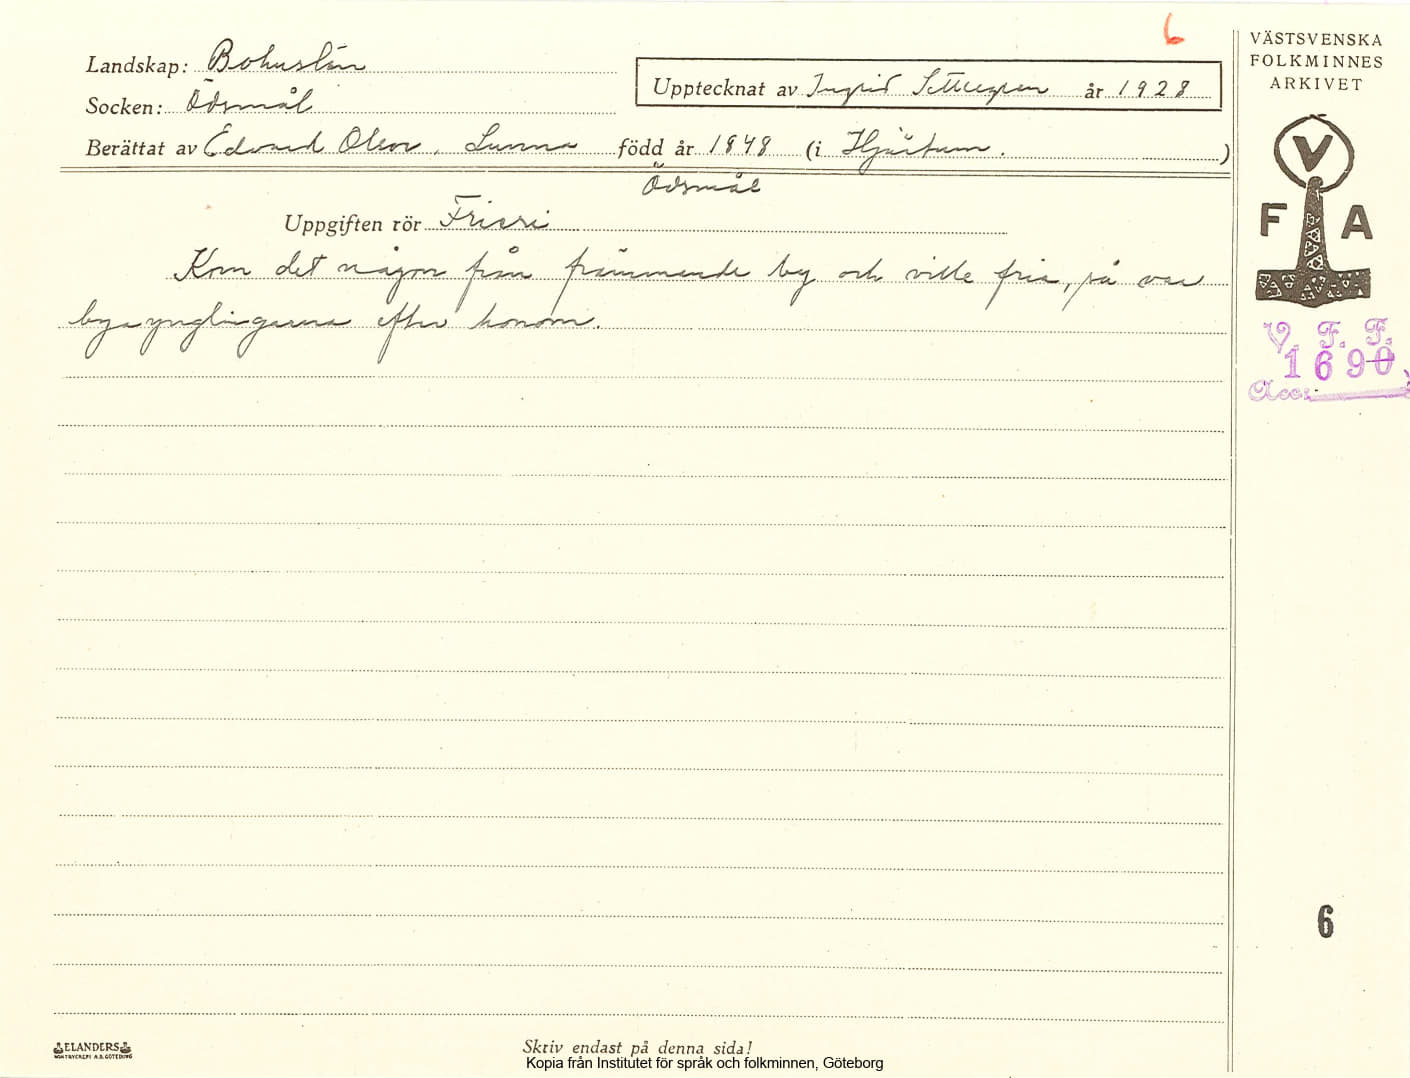 6
VÄSTSVENSKA
FOLKMINNES
ARKIVET
Landskap: Bohuslän
Upptecknat av Ingrid år 1928
Socken: Ödsmål
Berättat av Edvard Olson, Lunna född år 1848 (i Hjärtum.)
Ödsmål
V
F A
Uppgiften rör Frieri
Kom det någon från främmande by och ville fria, så var
byaynglingarna efter honom.
V. F. F.
1690
Acc:
6
ELANDERS
BOKTRYCKERI A.B. GÖTEBORG
Skriv endast på denna sida!
Kopia från Institutet för språk och folkminnen, Göteborg